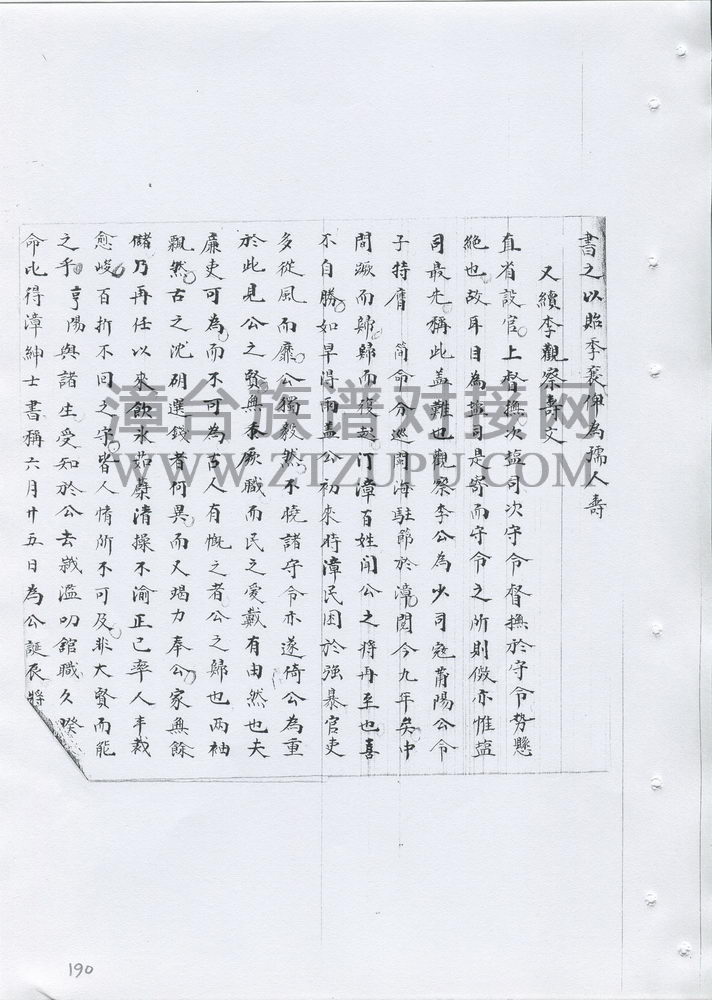 書之以貽季裘俾為孺人壽
又續李觀察壽文
直省設官上督撫次監司次守令督撫於守令勢懸
絕也故耳目為監司是寄而守令之所則傚亦惟監
司最尤稱此盖難也觀察李公為少司寇莆陽公令
子特膺 簡命分巡閩海駐節於漳閱今九年矣中
間蹶而歸歸而復這汀漳百姓聞公之將再至也喜
不自勝如旱得雨盖公初來時漳民困於強暴官吏
多從風而靡公獨毅然不撓諸守令亦遂倚公為重
於此見公之賢無忝厥職而民之愛戴有由然也夫
廉吏可為而不可為古人有慨之者公之歸也两袖
飄然古之沈硯選錢者何異而又竭力奉公家無餘
儲乃再任以來飲氷茹蘗清操不渝正己率人丰裁
愈峻百折不回之守皆人情所不可及非大賢而能
之乎亨陽與諸生受知於公去歲濫叨館職久暌
命比得漳紳士書稱六月廿五日為公誕辰將
漳台族谱对接网
WWW.ZTZUPU.COM
190